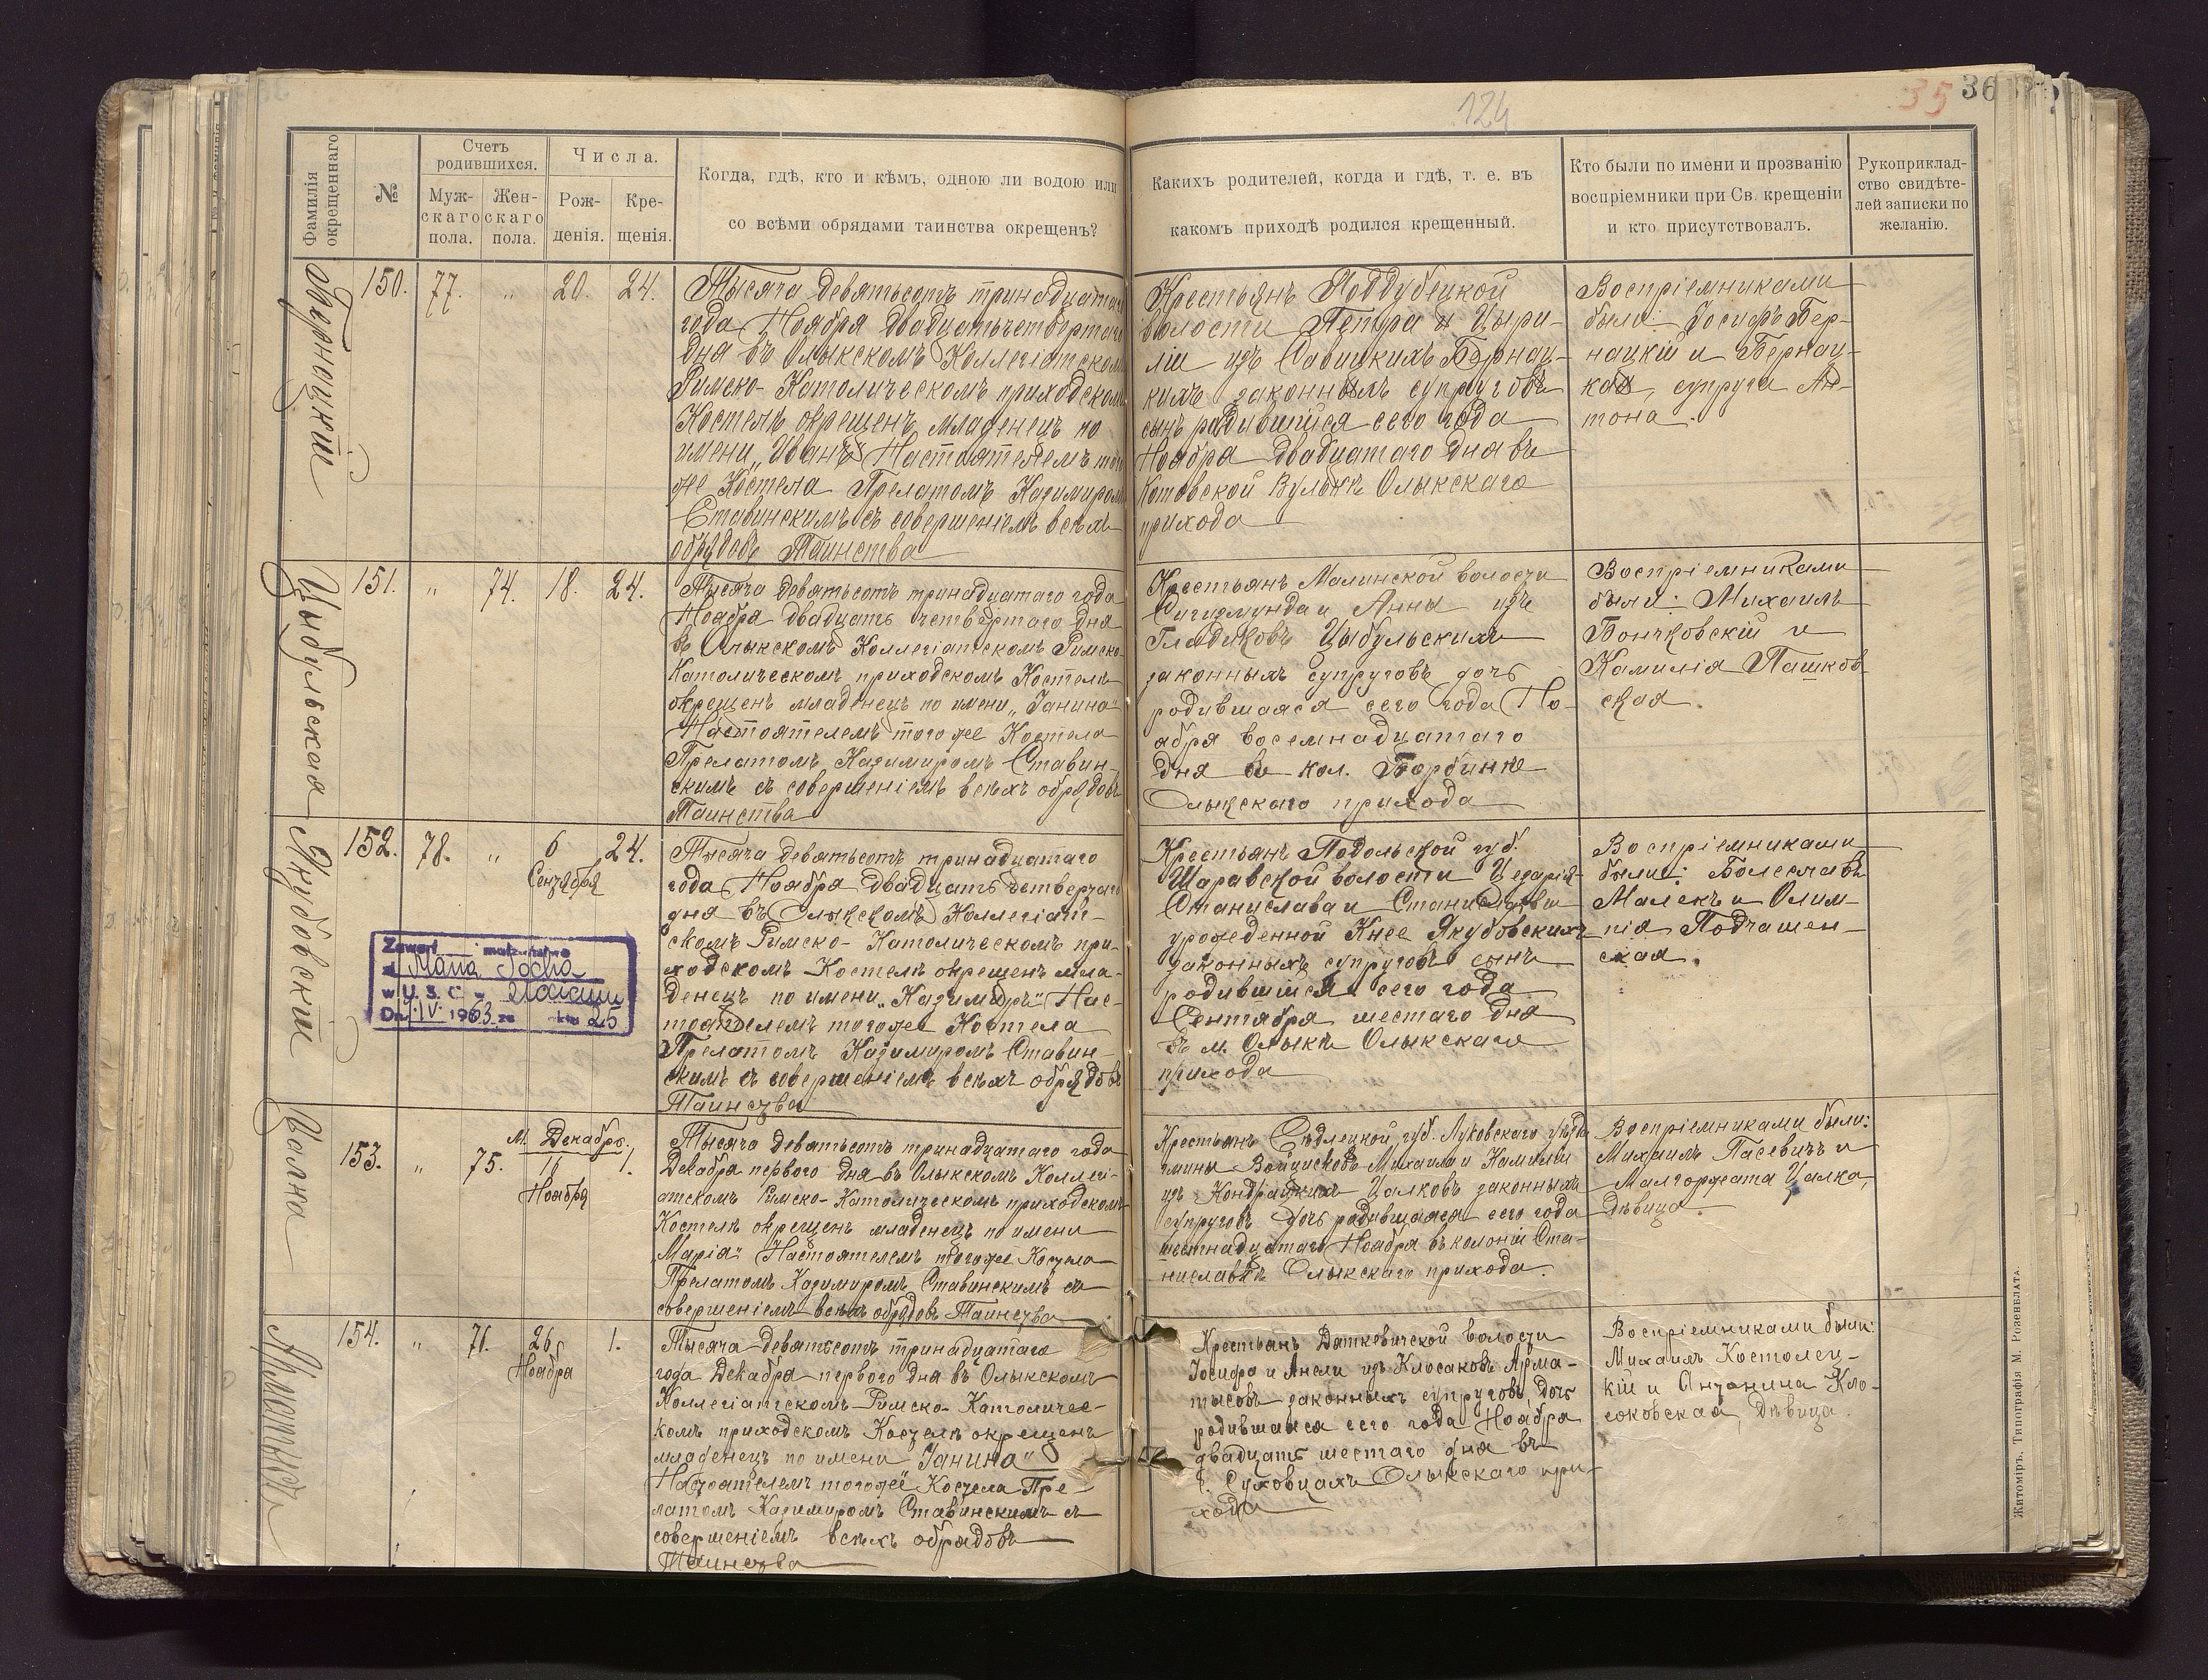 124
35
36
Фамилія окрещеннаго
№
Счетъ родившихся.
Мужскаго пола.
Женскаго пола.
Числа.
Рожденія.
Крещенія.
Когда, гдѣ, кто и кѣмъ, одною ли водою или
со всѣми обрядами таинства окрещенъ?
Какихъ родителей, когда и гдѣ, т. е. въ
какомъ приходѣ родился крещенный.
Кто были по имени и прозванію
воспріемники при Св. крещеніи
и кто присутствовалъ.
Рукоприклад-
ство свидѣте-
лей записки по
желанію.
Бернацкій
150.
77.
"
20.
24.
Тысяча девятьсотъ тринадцатаго
года Ноября двадцатьчетвертаго
дня въ Олыкскомъ Коллегіатскомъ
Римско-Католическомъ приходскомъ
Костелѣ окрещенъ младенецъ по
имени „Иванъ" Настоятелемъ того
же Костела Прелатомъ Казимиромъ
Ставинскимъ съ совершеніемъ всѣхъ
обрядовъ Таинства
Крестьянъ Поддубецкой
волости Петра и Цыри-
ліи изъ Савицкихъ Бернац-
кихъ законныхъ супруговъ
сынъ родившійся сего года
Ноября двадцатаго дня въ
Котовской Вулькѣ Олыкскаго
прихода
Воспріемниками
были: Іосифъ Бер-
нацкій и Бернац-
кая, супруга Ан-
тона.
Цыбульская
151.
"
74.
18.
24.
Тысяча девятьсотъ тринадцатаго года
Ноября двадцать четвертаго дня
въ Олыкскомъ Коллегіатскомъ Римско-
Католическомъ приходскомъ Костелѣ
окрещенъ младенецъ по имени „Янина"
Настоятелемъ того же Костела
Прелатомъ Казимиромъ Ставин-
скимъ съ совершеніемъ всѣхъ обрядовъ
Таинства
Крестьянъ Малинской волости
Сигизмунда и Анны изъ
Гладиковъ Цыбульскихъ
законныхъ супруговъ дочь
родившаяся сего года Но-
ября восемнадцатаго
дня въ кол. Борбинѣ
Олыкскаго прихода
Воспріемниками
были: Михаилъ
Бончковскій и
Камилія Пашков-
ская.
Якубовскій
152.
78.
"
6
Сентября
24.
Тысяча девятьсотъ тринадцатаго
года Ноября двадцать четвертаго
дня въ Олыкскомъ Коллегіат-
скомъ Римско-Католическомъ при-
ходскомъ Костелѣ окрещенъ мла-
денецъ по имени „Казимиръ" Нас-
тоятелемъ того же Костела
Прелатомъ Казимиромъ Ставин-
скимъ съ совершеніемъ всѣхъ обрядовъ
Таинства
Крестьянъ Подольской губ.
Шаравской волости Цезарія-
Станислава и Станиславы
урожденной Кнее Якубовскихъ
законныхъ супруговъ сынъ
родившійся сего года
Сентября шестаго дня
въ м. Олыкѣ Олыкскаго
прихода
Воспріемниками
были: Болеславъ
Малекъ и Олим-
пія Подчашен-
ская.
Zawarł małżeństwo
z Maria Socha
w U. S. C. w
Dn. IV 1963 za 25
Цалка
153.
"
75.
М. Декабрь.
16
Ноября
1.
Тысяча девятьсотъ тринадцатаго года
Декабря перваго дня въ Олыкскомъ Коллегі-
атскомъ Римско-Католическомъ приходскомъ
Костелѣ окрещенъ младенецъ по имени
„Марія" Настоятелемъ того же Костела
Прелатомъ Казимиромъ Ставинскимъ съ
совершеніемъ всѣхъ обрядовъ Таинства
Крестьянъ Сѣдлецкой губ. Луковскаго уѣзда
гмины Войцисковъ Михаила и Камиліи
изъ Кондрацкихъ Цалковъ законныхъ
супруговъ дочь родившаяся сего года
шестнадцатаго Ноября въ колоніи Ста-
ниславкѣ Олыкскаго прихода.
Воспріемниками были:
Михаилъ Пасевичъ и
Малгоржата Цалка,
дѣвица.
Арматысъ
154.
"
76.
26
Ноября
1.
Тысяча девятьсотъ тринадцатаго
года Декабря перваго дня въ Олыкскомъ
Коллегіатскомъ Римско-Католичес-
комъ приходскомъ Костелѣ окрещенъ
младенецъ по имени „Янина"
Настоятелемъ того же Костела Пре-
латомъ Казимиромъ Ставинскимъ съ
совершеніемъ всѣхъ обрядовъ
Таинства
Крестьянъ Дяткевичской волости
Іосифа и Анели изъ Клосаковъ Арма-
тысовъ законныхъ супруговъ, дочь
родившаяся сего года Ноября
двадцать шестаго дня въ
с. Суховцахъ Олыкскаго при-
хода
Воспріемниками были:
Михаилъ Костолец-
кій и Антонина Кло-
соковская, дѣвица.
Житомиръ. Типографія М. Розенблата.